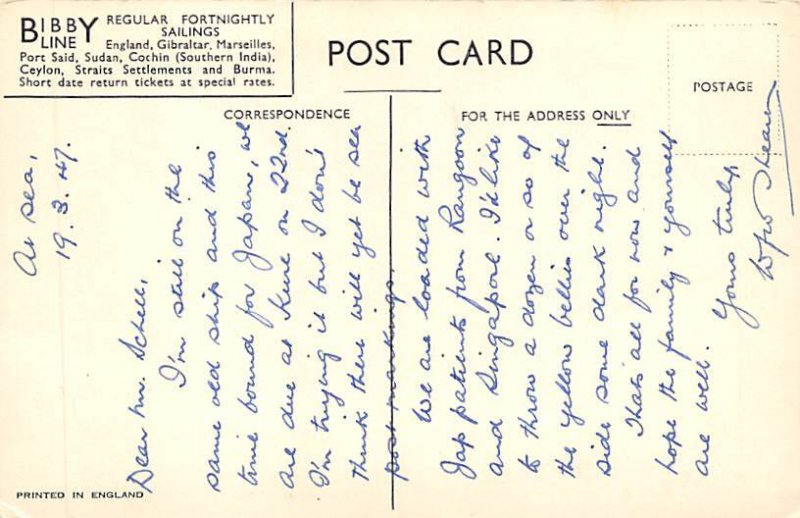 BIBBY LINE
REGULAR FORTNIGHTLY
SAILINGS
England, Gibraltar, Marseilles,
Port Said, Sudan, Cochin (Southern India),
Ceylon, Straits Settlements and Burma.
Short date return tickets at special rates.
POST CARD
POSTAGE
CORRESPONDENCE
FOR THE ADDRESS ONLY
At sea,
19.3.47.
Dear Mr. Schell,
I'm still on the
same old ship and this
time bound for Japan, we
are due at Kure on 22nd.
I'm trying it but I don't
think there will yet be sea
post markings.
We are loaded with
Jap patients from Rangoon
and Singapore. I'd like
to throw a dozen or so of
the yellow bellies over the
side some dark night.
Thats all for now and
hope the family & yourself
are well.
Yours truly,
PRINTED IN ENGLAND